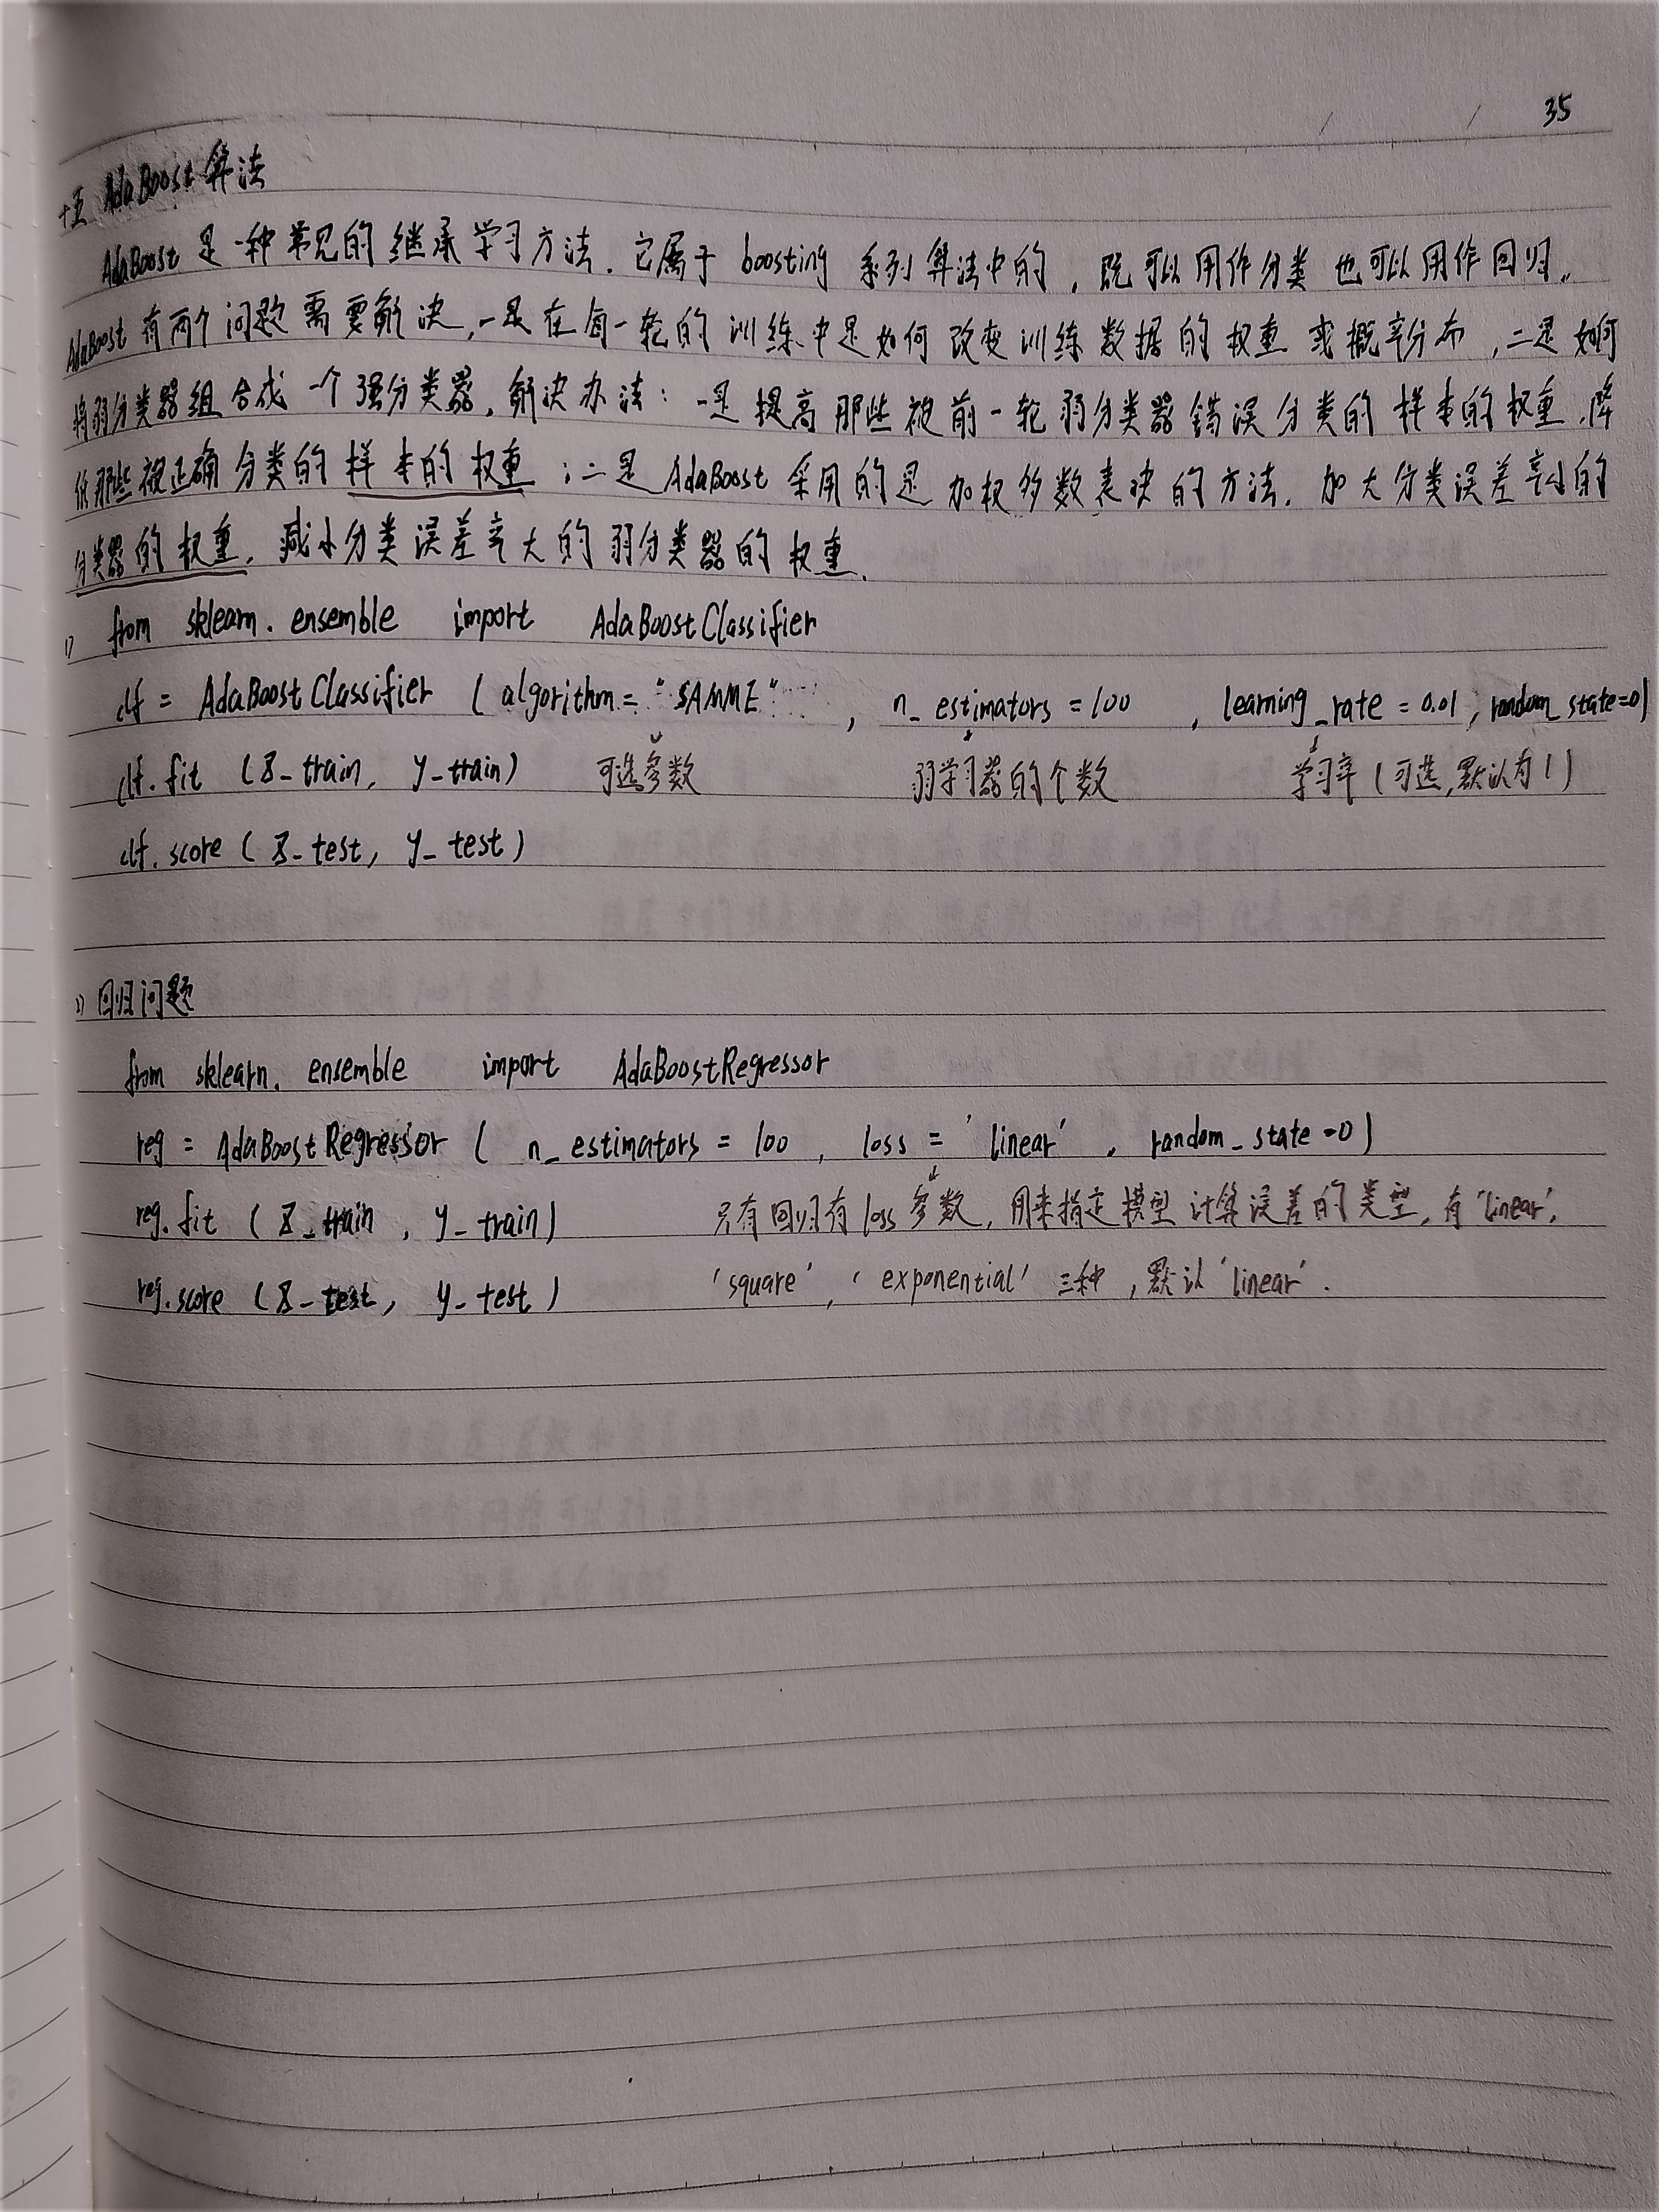 35
十五 AdaBoost 算法
AdaBoost 是一种常见的继承学习方法. 它属于 boosting 系列算法中的, 既可以用作分类也可以用作回归。
AdaBoost 有两个问题需要解决, 一是在每一轮的训练中是如何改变训练数据的权重或概率分布, 二是如何
将弱分类器组合成一个强分类器. 解决办法: 一是提高那些被前一轮弱分类器错误分类的样本的权重, 降
低那些被正确分类的样本的权重; 二是 AdaBoost 采用的是加权多数表决的方法. 加大分类误差率小的
分类器的权重, 减小分类误差率大的弱分类器的权重.
1) from sklearn. ensemble import AdaBoostClassifier
clf = AdaBoostClassifier ( algorithm = "SAMME" , n_estimators = 100 , learning_rate = 0.01 , random_state=0)
clf. fit (X_train, y_train) 可选参数 弱学习器的个数 学习率 (可选, 默认为1)
clf. score ( X_test, y_test )
2) 回归问题
from sklearn. ensemble import AdaBoostRegressor
reg = AdaBoostRegressor ( n_estimators = 100 , loss = 'linear' , random_state=0)
reg. fit ( X_train , y_train) 只有回归有 loss 参数, 用来指定模型计算误差的类型, 有 'linear',
reg. score ( X_test, y_test ) 'square' , 'exponential' 三种, 默认 'linear' .